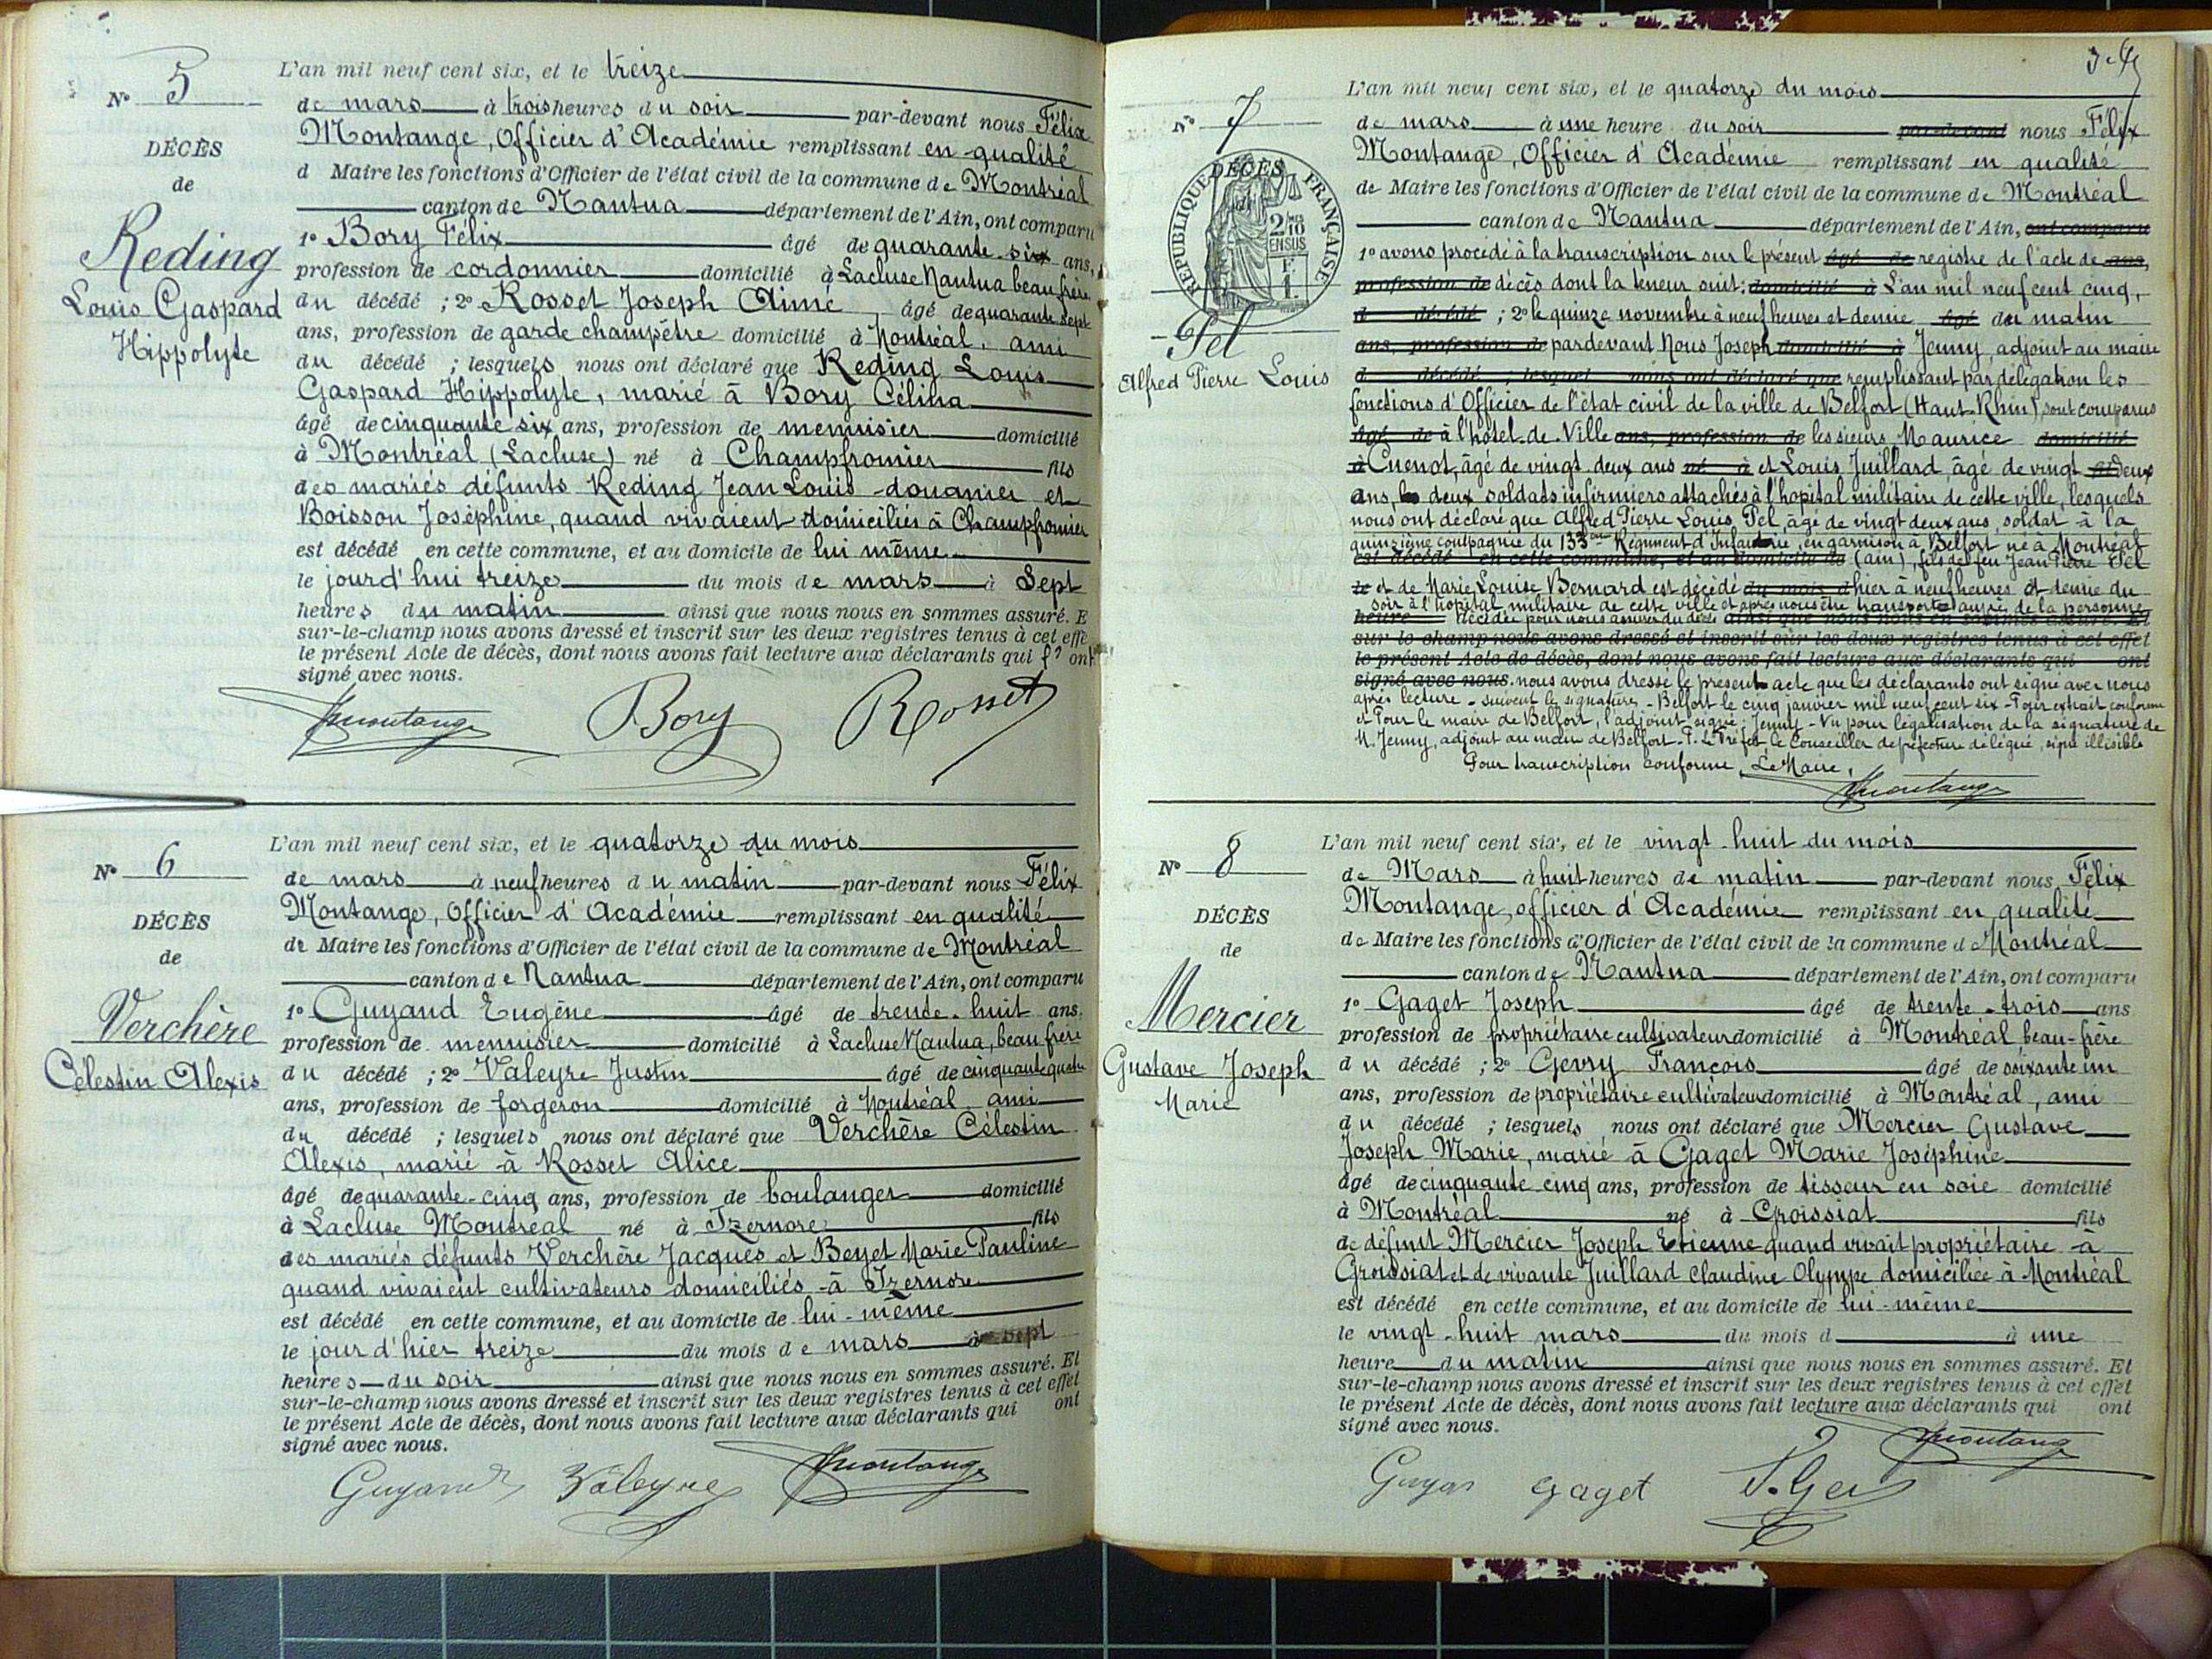 N° 5
DÉCÈS
de
Reding
Louis Gaspard
Hippolyte
L'an mil neuf cent six, et le treize
de mars à trois heures du soir par-devant nous Félix
Montange, Officier d'Académie remplissant en qualité
d Maire les fonctions d'Officier de l'état civil de la commune de Montréal
canton de Nantua département de l'Ain, ont comparu
1° Bory Félix âgé de quarante six ans,
profession de cordonnier domicilié à Lacluse Nantua beau frère
du décédé ; 2° Rosset Joseph Aimé âgé de quarante sept
ans, profession de garde champêtre domicilié à Montréal, ami
du décédé ; lesquels nous ont déclaré que Reding Louis
Gaspard Hippolyte, marié à Bory Célina
âgé de cinquante six ans, profession de menuisier domicilié
à Montréal (Lacluse) né à Champfromier fils
des mariés défunts Reding Jean Louis douanier et
Boisson Joséphine, quand vivaient domiciliés à Champfromier
est décédé en cette commune, et au domicile de lui même
le jourd'hui treize du mois de mars à Sept
heures du matin ainsi que nous nous en sommes assuré. E
sur-le-champ nous avons dressé et inscrit sur les deux registres tenus à cet effe
le présent Acte de décès, dont nous avons fait lecture aux déclarants qui ont
signé avec nous.
Montange Bory Rosset
N° 6
DÉCÈS
de
Verchère
Célestin Alexis
L'an mil neuf cent six, et le quatorze du mois
de mars à neuf heures du matin par-devant nous Félix
Montange, Officier d'Académie remplissant en qualité
de Maire les fonctions d'Officier de l'état civil de la commune de Montréal
canton de Nantua département de l'Ain, ont comparu
1° Guyand Eugène âgé de trente-huit ans,
profession de menuisier domicilié à Lacluse Nantua, beau frère
du décédé ; 2° Valeyre Justin âgé de cinquante quatre
ans, profession de forgeron domicilié à Montréal ami
du décédé ; lesquels nous ont déclaré que Verchère Célestin
Alexis, marié à Rosset Alice
âgé de quarante-cinq ans, profession de boulanger domicilié
à Lacluse Montréal né à Izernore fils
des mariés défunts Verchère Jacques et Beyet Marie Pauline
quand vivaient cultivateurs domiciliés à Izernore
est décédé en cette commune, et au domicile de lui-même
le jour d'hier treize du mois de mars à sept
heures du soir ainsi que nous nous en sommes assuré. Et
sur-le-champ nous avons dressé et inscrit sur les deux registres tenus à cet effet
le présent Acte de décès, dont nous avons fait lecture aux déclarants qui ont
signé avec nous.
Guyand Valeyre Montange
N° 7
DÉCÈS
de
RÉPUBLIQUE FRANÇAISE
2/10 EN SUS
1 F
Pel
Alfred Pierre Louis
L'an mil neuf cent six, et le quatorze du mois
de mars à une heure du soir par-devant nous Félix
Montange, Officier d'Académie remplissant en qualité
de Maire les fonctions d'Officier de l'état civil de la commune de Montréal
canton de Nantua département de l'Ain, ont comparu
1° avons procédé à la transcription sur le présent âgé de registre de l'acte de ans,
profession de décès dont la teneur suit: domicilié à L'an mil neuf cent cinq,
d décédé ; 2° le quinze novembre à neuf heures et demie âgé du matin
ans, profession de pardevant Nous Joseph domicilié à Jenny, adjoint au maire
d décédé ; lesquel nous ont déclaré que remplissant par délégation les
fonctions d'Officier de l'état civil de la ville de Belfort (Haut-Rhin), sont comparus
âgé de à l'hôtel de Ville ans, profession de les sieurs Maurice domicilié
à Cuenot, âgé de vingt-deux ans né à et Louis Juillard âgé de vingt deux
ans, deux soldats infirmiers attachés à l'hôpital militaire de cette ville, lesquels
nous ont déclaré que Alfred Pierre Louis Pel, âgé de vingt deux ans, soldat à la
quinzième compagnie du 133e Régiment d'Infanterie, en garnison à Belfort né à Montréal
est décédé en cette commune, et au domicile de (ain), fils de feu Jean Pierre Pel
le et de Marie Louise Bernard est décédé du mois d hier à neuf heures et demie du
soir à l'hôpital militaire de cette ville et après nous être transporté auprès de la personne
heure décédée pour nous assurer du décès ainsi que nous nous en sommes assuré. Et
sur-le-champ nous avons dressé et inscrit sur les deux registres tenus à cet effet
le présent Acte de décès, dont nous avons fait lecture aux déclarants qui ont
signé avec nous. nous avons dressé le présent acte que les déclarants ont signé avec nous
après lecture - suivent les signatures - Belfort le cinq janvier mil neuf cent six - Pour extrait conforme
et Pour le maire de Belfort, l'adjoint signé: Jenny - Vu pour légalisation de la signature de
M. Jenny, adjoint au maire de Belfort. P. Le Préfet le Conseiller de préfecture délégué, signé illisible
Pour transcription conforme, Le Maire,
Montange
N° 8
DÉCÈS
de
Mercier
Gustave Joseph
Marie
L'an mil neuf cent six, et le vingt huit du mois
de Mars à huit heures de matin par-devant nous Félix
Montange, officier d'Académie remplissant en qualité
de Maire les fonctions d'Officier de l'état civil de la commune d Montréal
canton de Nantua département de l'Ain, ont comparu
1° Gaget Joseph âgé de trente-trois ans
profession de propriétaire cultivateur domicilié à Montréal, beau-frère
du décédé ; 2° Gevry François âgé de soixante un
ans, profession de propriétaire cultivateur domicilié à Montréal, ami
du décédé ; lesquels nous ont déclaré que Mercier Gustave
Joseph Marie, marié à Gaget Marie Joséphine
âgé de cinquante cinq ans, profession de tisseur en soie domicilié
à Montréal né à Groissiat fils
de défunt Mercier Joseph Etienne quand vivait propriétaire à
Groissiat et de vivante Juillard Claudine Olympe domiciliée à Montréal
est décédé en cette commune, et au domicile de lui-même
le vingt-huit mars du mois d à une
heure du matin ainsi que nous nous en sommes assuré. Et
sur-le-champ nous avons dressé et inscrit sur les deux registres tenus à cet effet
le présent Acte de décès, dont nous avons fait lecture aux déclarants qui ont
signé avec nous.
Montange
Gaget